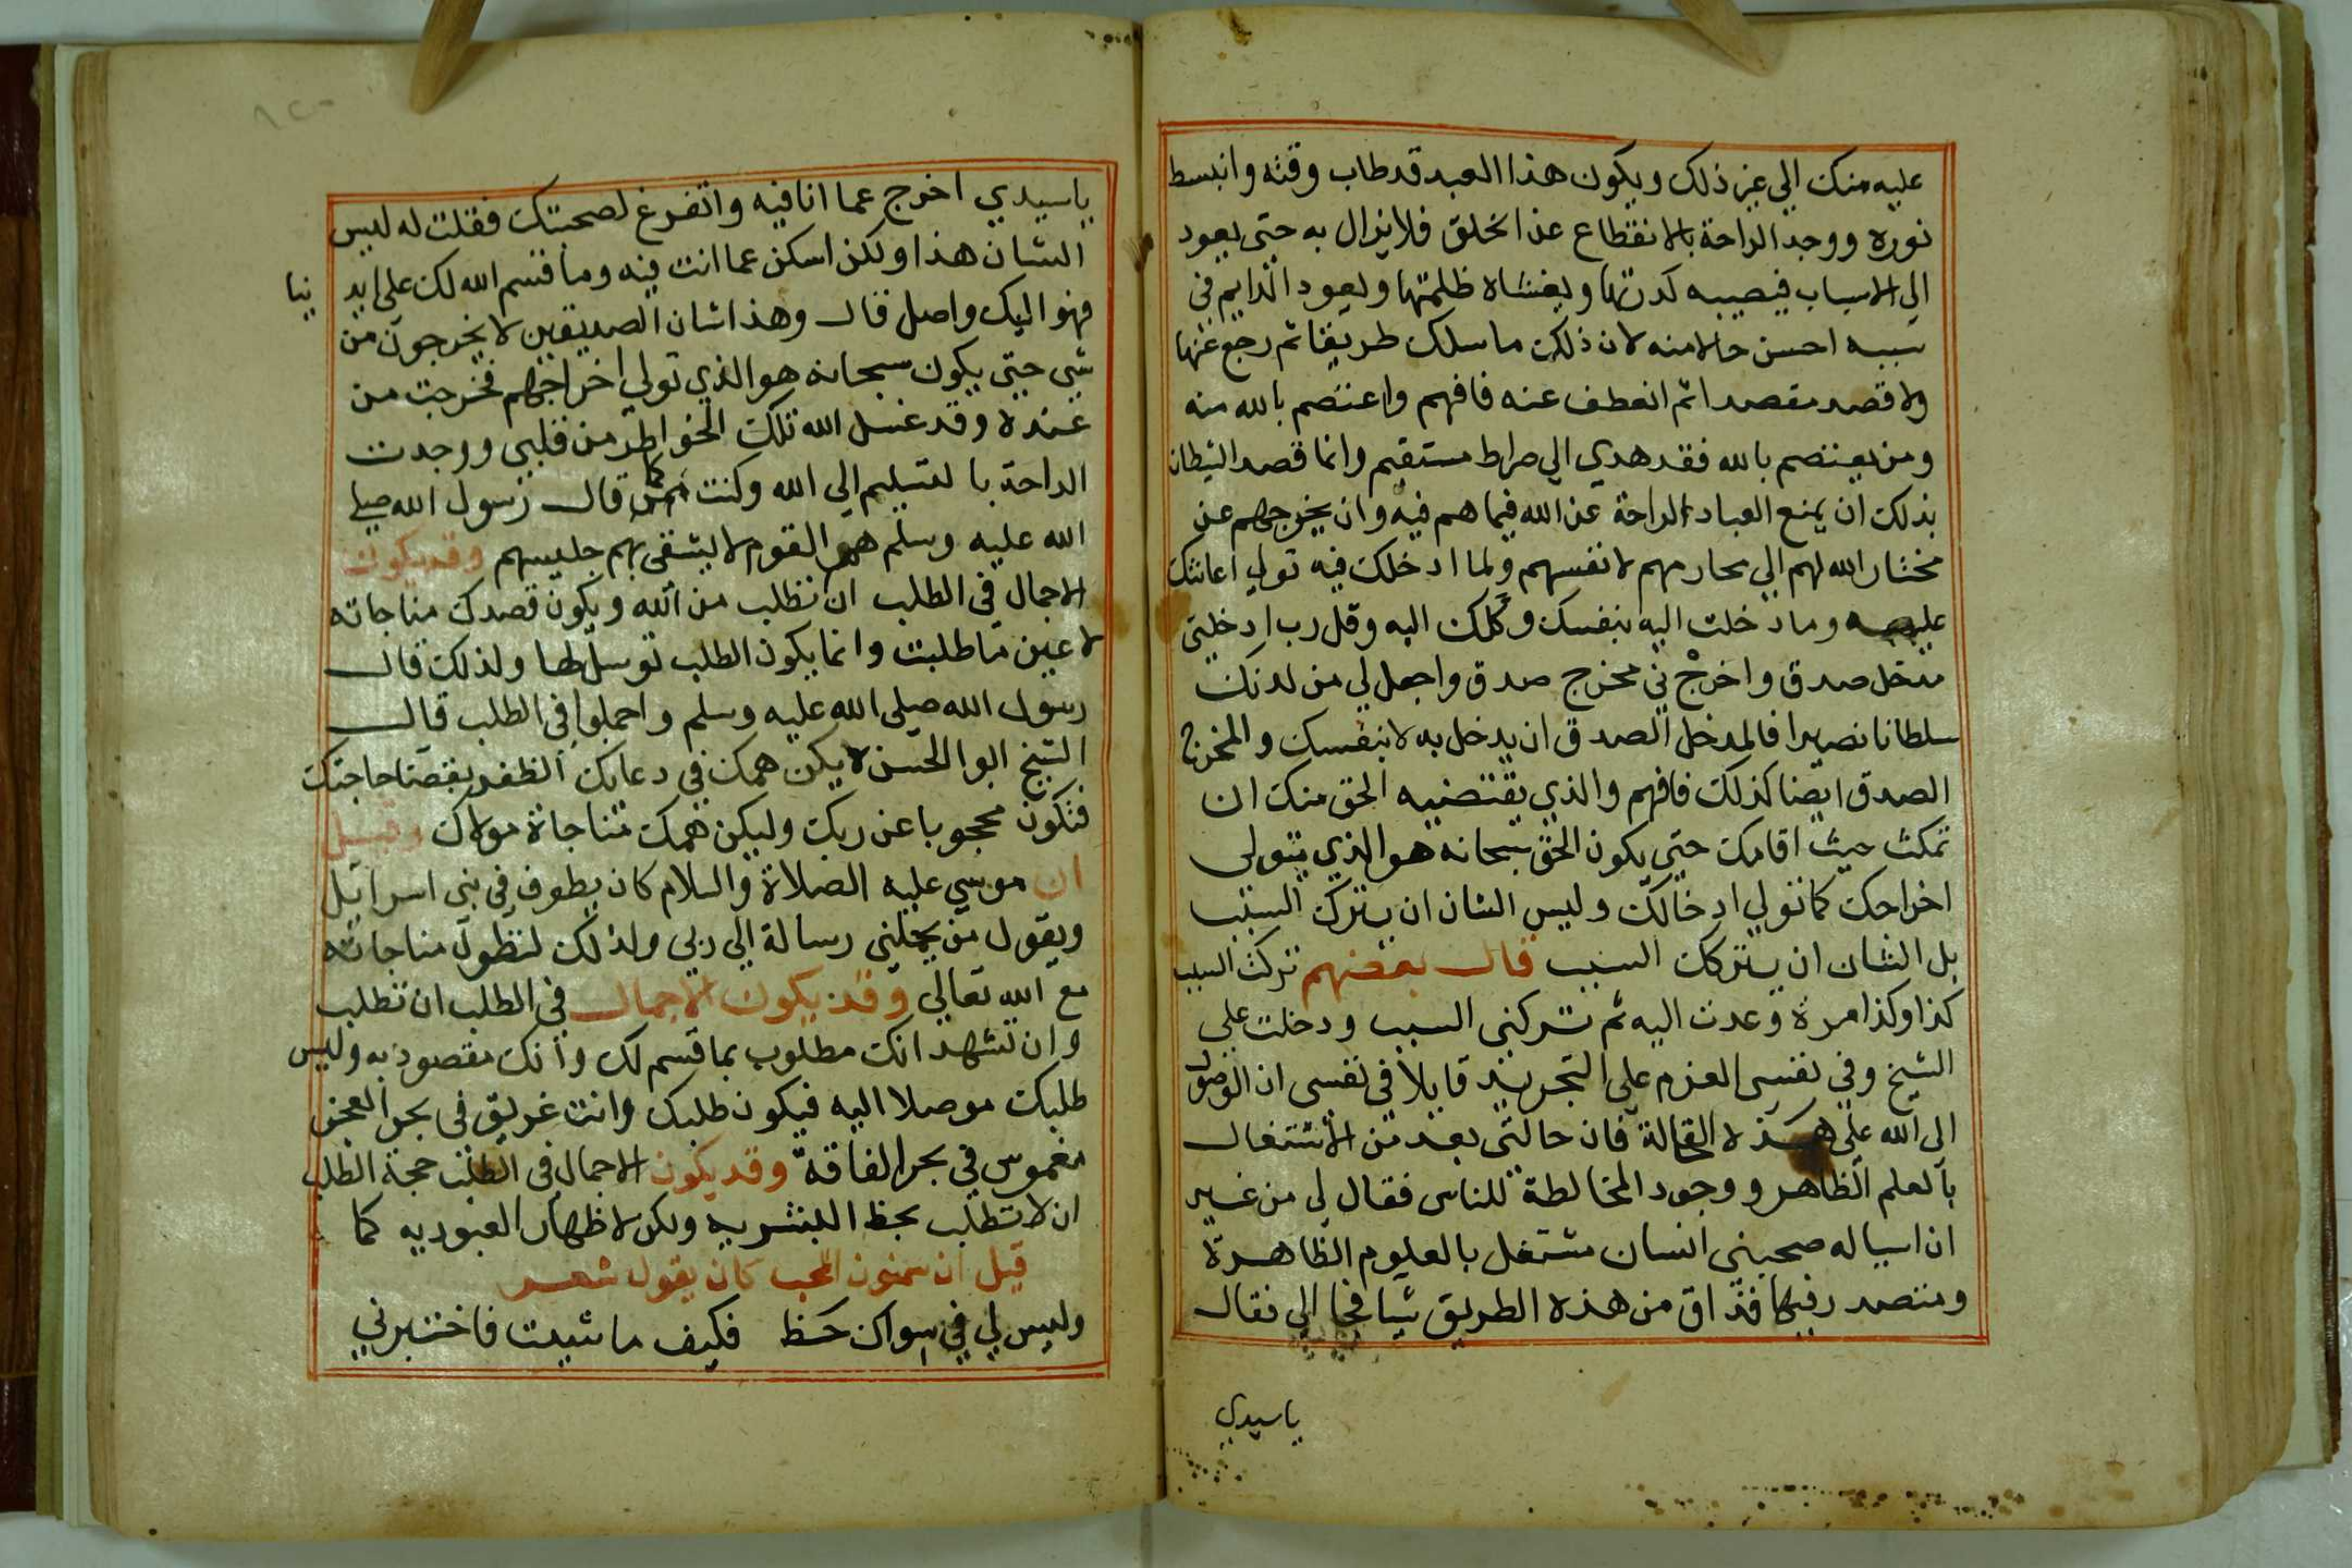 عليه منك الي غير ذلك ويكون هذا العبد قد طاب وقته وانبسط
نوره ووجد الراحة بالانقطاع عن الخلق فلا يزال به حتى يعود
الى الاسباب فيصيبه كدرتها ويغشاه ظلمتها ويعود الدايم في
سببه احسن حالا منه لان ذلك ما سلك طريقا ثم رجع عنها
ولا قصد مقصدا ثم انعطف عنه فافهم واعتصم بالله منه
ومن يعتصم بالله فقد هدي الي صراط مستقيم وانما قصد الشيطان
بذلك ان يمنع العباد الراحة عن الله فيما هم فيه وان يخرجهم عن
مختار الله لهم الي مختارهم لانفسهم ولما ادخلك فيه تولي اعانتك
عليه وما دخلت اليه بنفسك وكلك اليه وقل رب ادخلني
مدخل صدق واخرجني مخرج صدق واجعل لي من لدنك
سلطانا نصيرا فالمدخل الصدق ان يدخل به لا بنفسك والمخرج
الصدق ايضا كذلك فافهم والذي يقتضيه الحق منك ان
تمكث حيث اقامك حتي يكون الحق سبحانه هو الذي يتولى
اخراجك كما تولي ادخالك وليس الشان ان يترك السبب
بل الشان ان يتركك السبب قال بعضهم تركت السبب
كذا وكذا مرة وعدت اليه ثم تركني السبب ودخلت على
الشيخ وفي نفسي العزم على التجريد قايلا في نفسي ان الوصول
الى الله على هذه الحالة فان حالتي بعد من الاشتغال
بالعلم الظاهر ووجود المخالطة للناس فقال لي من غير
ان اساله صحبني انسان مشتغل بالعلوم الظاهرة
ومتصدر فيها فذاق من هذه الطريق شيا فجا الي فقال
ياسيدي
ياسيدي اخرج عما انا فيه واتفرغ لصحبتك فقلت له ليس
الشان هذا ولكن اسكن عما انت فيه وما قسم الله لك على ايد نيا
فهو اليك واصل قال وهذا شان الصديقين لا يخرجون من
شي حتي يكون سبحانه هو الذي تولي اخراجهم فخرجت من
عنده وقد غسل الله تلك الخواطر من قلبي ووجدت
الراحة بالتسليم الى الله وكنت كما قال رسول الله صلي
الله عليه وسلم هم القوم لا يشقى بهم جليسهم وقد يكون
الاجمال في الطلب ان تطلب من الله ويكون قصدك مناجاته
لا عين ما طلبت وانما يكون الطلب توسلا لها ولذلك قال
رسول الله صلي الله عليه وسلم واجملوا في الطلب قال
الشيخ ابوا الحسن لا يكن همك في دعايك الظفر بقضا حاجتك
فتكون محجوبا عن ربك وليكن همك مناجاة مولاك وقيل
ان موسى عليه الصلاة والسلام كان يطوف في بني اسرائيل
ويقول من يحملني رسالة الى ربي ولذلك لتطول مناجاته
مع الله تعالي وقد يكون الاجمال في الطلب ان تطلب
وان تشهد انك مطلوب بما قسم لك وانك مقصود به وليس
طلبك موصلا اليه فيكون طلبك وانت غريق في بحر العجز
مغموس في بحر الفاقة وقد يكون الاجمال في الطلب حجة الطلب
ان لا تطلب بحظ البشريه ولكن لاظهار العبوديه كما
قيل ان سمنون المحب كان يقول شعر
وليس لي في سواك حظ فكيف ما شيت فاختبرني